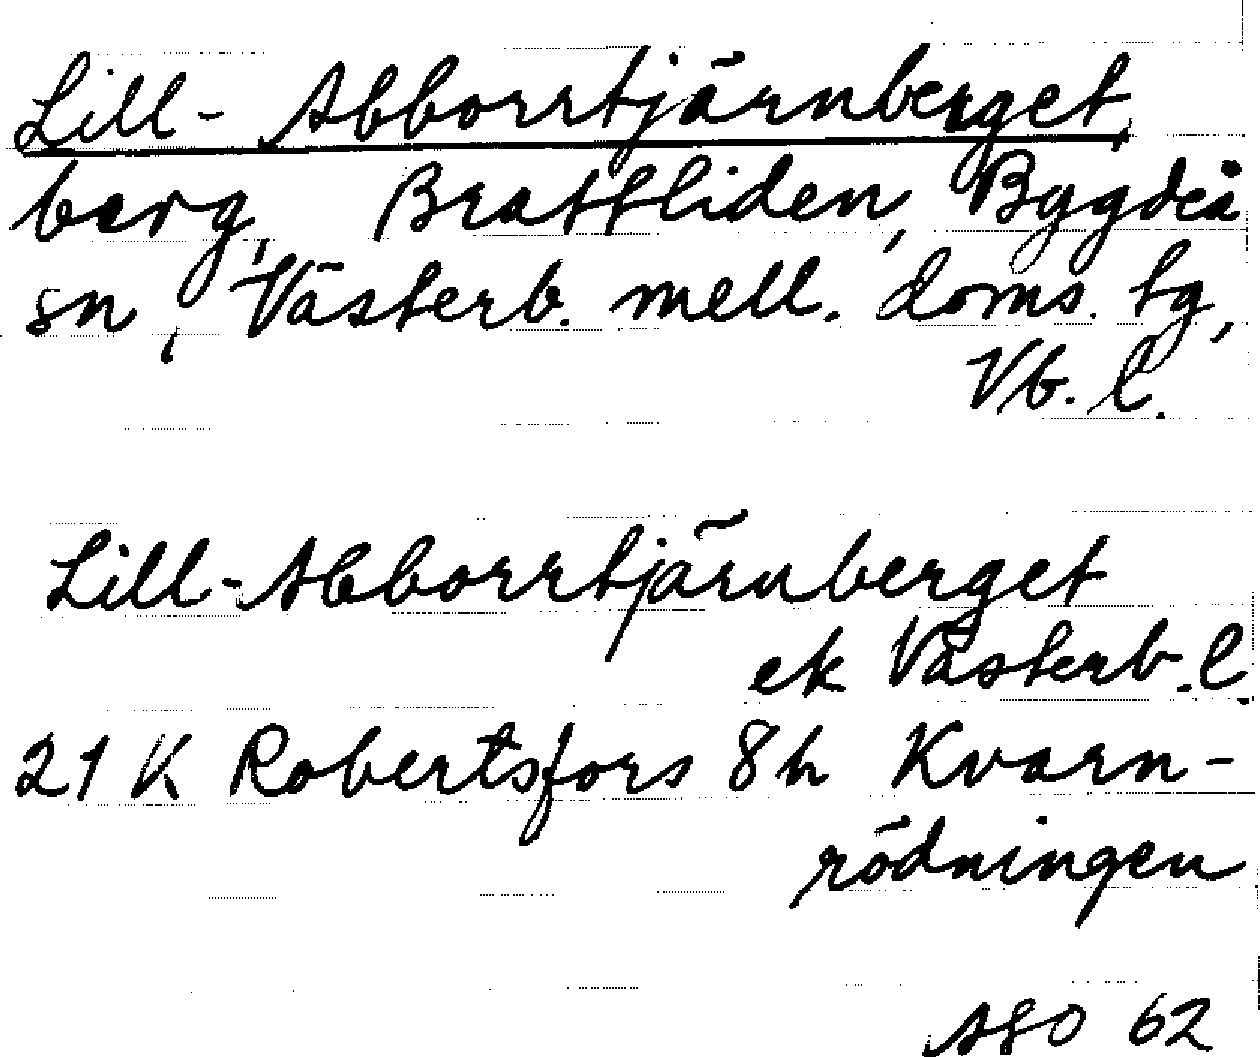 Lill-Abborrtjärnberget,
berg, Brattliden, Bygdeå
sn, Västerb. mell. doms. tg,
Vb. l.
Lill-Abborrtjärnberget
ek Västerb. l.
21 K Robertsfors 8h Kvarn-
rödningen
62